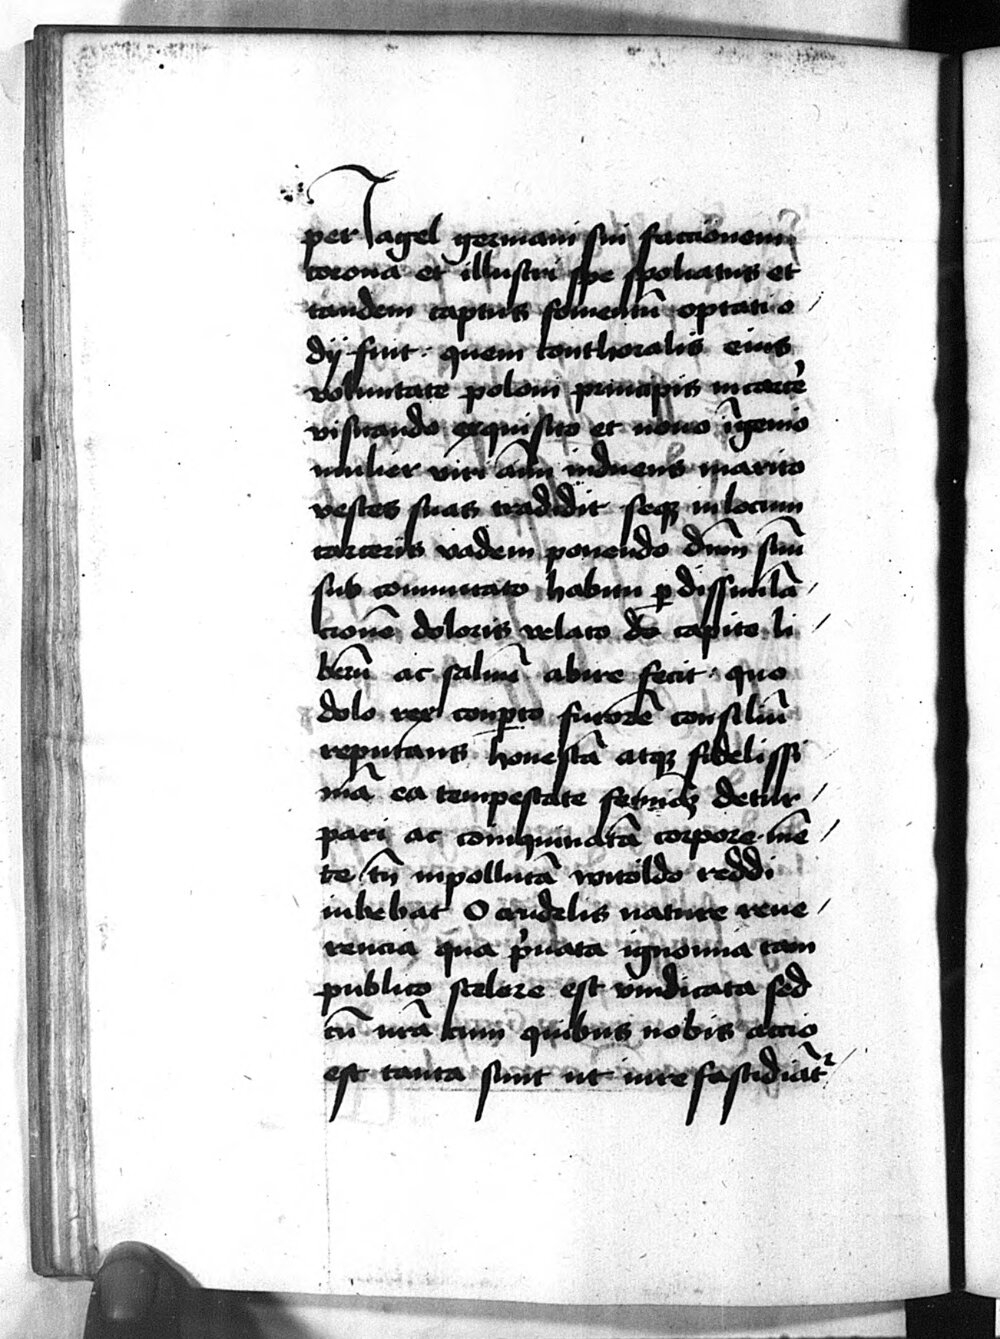 per Jagel germani sui faccionem
corona et illustri spe spoliatus et
tandem captus fomentū optati o
dij fuit · quem conthoralis eius
voluntate poloni principis in carcē
visitando exquisito et nouo īgenio
mulier viri aīm induens marito
vestes suas tradidit seqꝫ in locum
carceris vadem ponendo dnm̄ suū
sub comutato habitu ꝑ dissimulā
cionē doloris velato do capite li
berū ac saluū abire fecit · quo
dolo rex conperto furorē consiliū
reputans honestā atqꝫ fidelissi
mā ea tempestate detur
pari ac coinquinatā corpore mē
te tn̄ inpollutā witoldo reddi
iubebat O crudelis nature reue
rencia qua pͥuata ignomia tam
publico scelere est vindicata sed
cū nr̄a cum quibus nobis accio
est tanta sunt ut iure fastidiāt